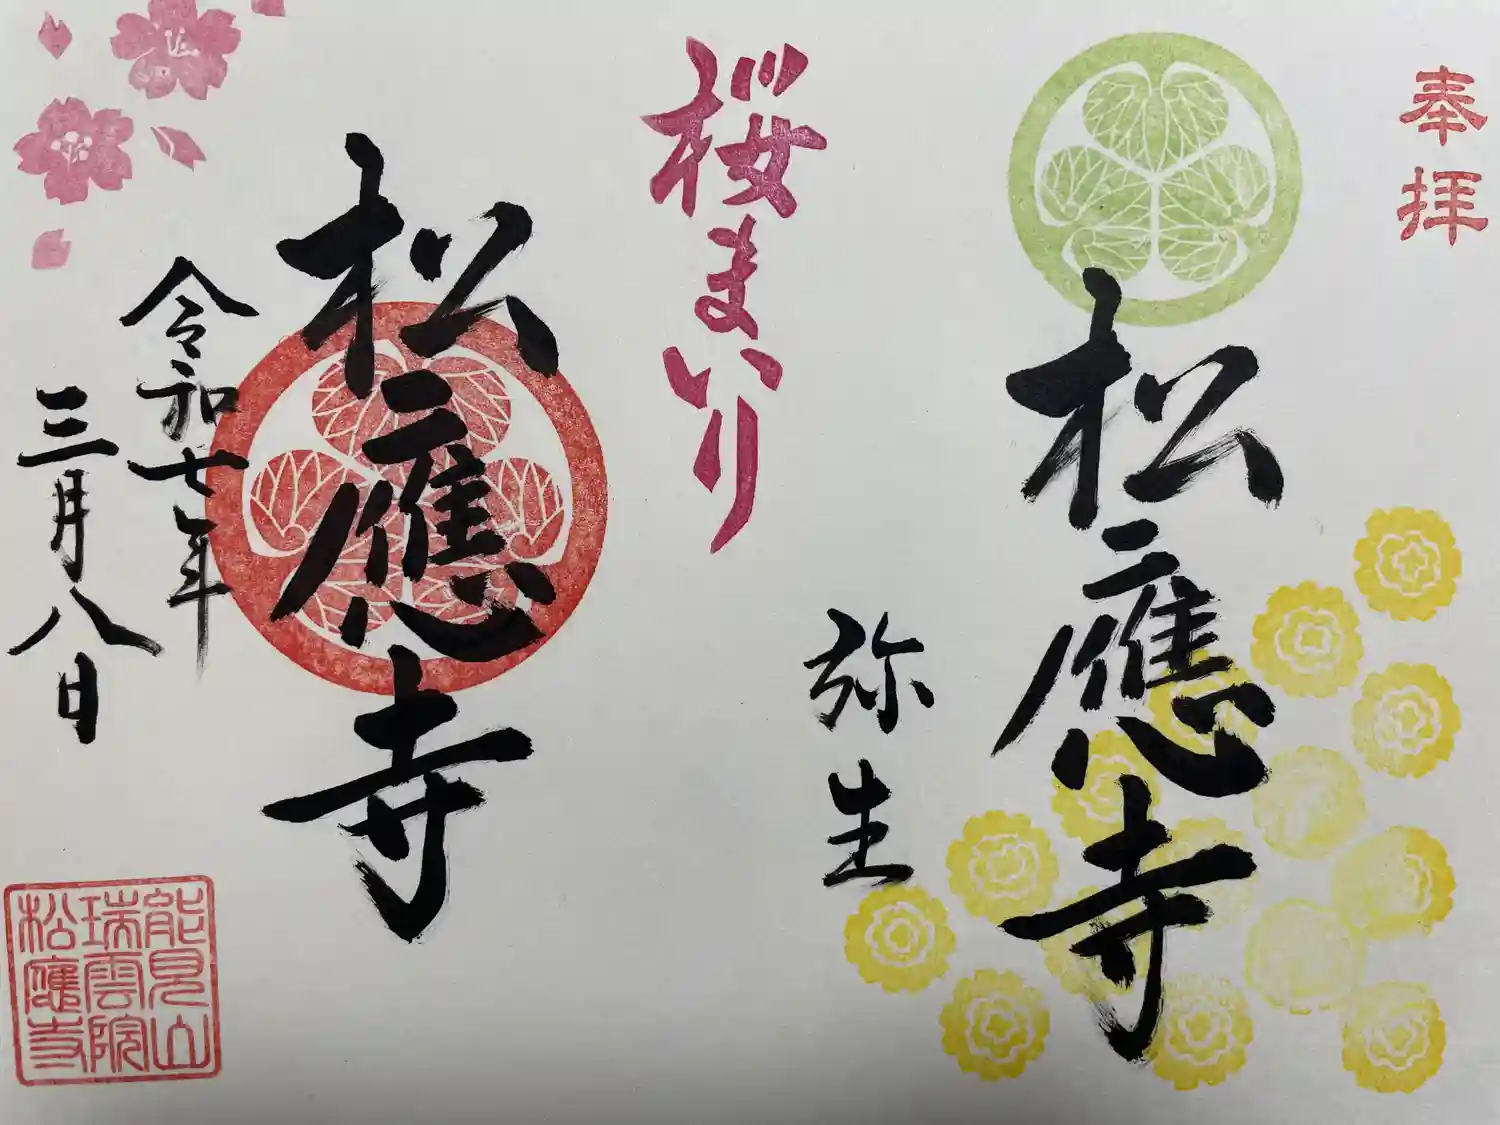 奉拝
松應寺
弥生
桜まいり
松應寺
令和七年
三月八日
能見山
瑞雲院
松應寺